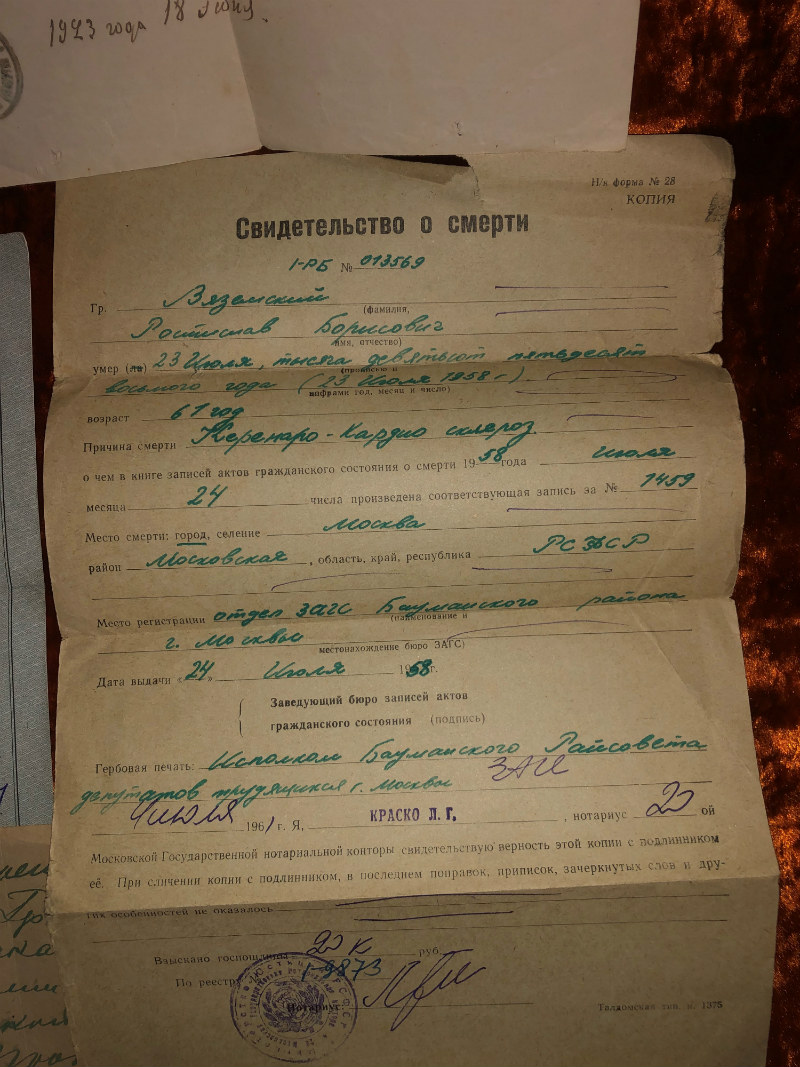 1923 года 18 Июня
Н/к форма № 28
КОПИЯ
Свидетельство о смерти
I-РБ № 013569
Гр. Вяземский
(фамилия,
Ростислав Борисович
имя, отчество)
умер (ла) 23 Июля, тысяча девятьсот пятьдесят
(прописью и
восьмого года (23 Июля 1958 г.)
цифрами год, месяц и число)
возраст 61 год
Причина смерти Керенаро-Кардио склероз
о чем в книге записей актов гражданского состояния о смерти 1958 года Июля
месяца 24 числа произведена соответствующая запись за № 1459
Место смерти: город, селение Москва
район Московская, область, край, республика РСФСР
Место регистрации отдел ЗАГС Бауманского района
(наименование и
г. Москвы
местонахождение бюро ЗАГС)
Дата выдачи «24» Июля 1958 г.
Заведующий бюро записей актов
гражданского состояния (подпись)
Гербовая печать: Исполком Бауманского Райсовета
депутатов трудящихся г. Москвы ЗАГС
4 июля 1961 г. Я, КРАСКО Л. Г., нотариус 20 ой
Московской Государственной нотариальной конторы свидетельствую верность этой копии с подлинником
её. При сличении копии с подлинником, в последнем поправок, приписок, зачеркнутых слов и дру-
гих особенностей не оказалось
Взыскано госпошлины 20 к руб.
По реестру 1-9873
Нотариус
Талдомская тип. з. 1375